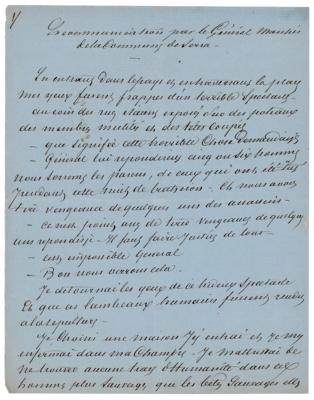 Recommandation par le Général
de la Commune de
En entrant dans le pays en
mes yeux furent frappés d'un terrible Spectacle
au coin des rues étaient exposés à des poteaux
des membres mutilés et des têtes coupés
— que signifie cette horrible Chose demandai-je
— Général lui répondirent cinq ou Six hommes
nous Sommes les parens, de ceux qui ont été
pendant cette nuit de trahison — Et nous avons
tiré vengeance de quelques uns des assassins —
— Ce n'est point de tirer vengeance de quelques
uns répondis-je — Il faut faire justice de tous —
— C'est impossible Général
— Bon nous verrons cela —
Je détournai les yeux de ce hideux Spectacle
Et que ces lambeaux humains fussent rendus
à la sépulture —
Je Choisis une maison J'y entrai et je my
enfermai dans ma Chambre — Je
ne trouver aucune trace d'humanité dans ces
hommes plus Sauvages, que les bêtes Sauvages elles